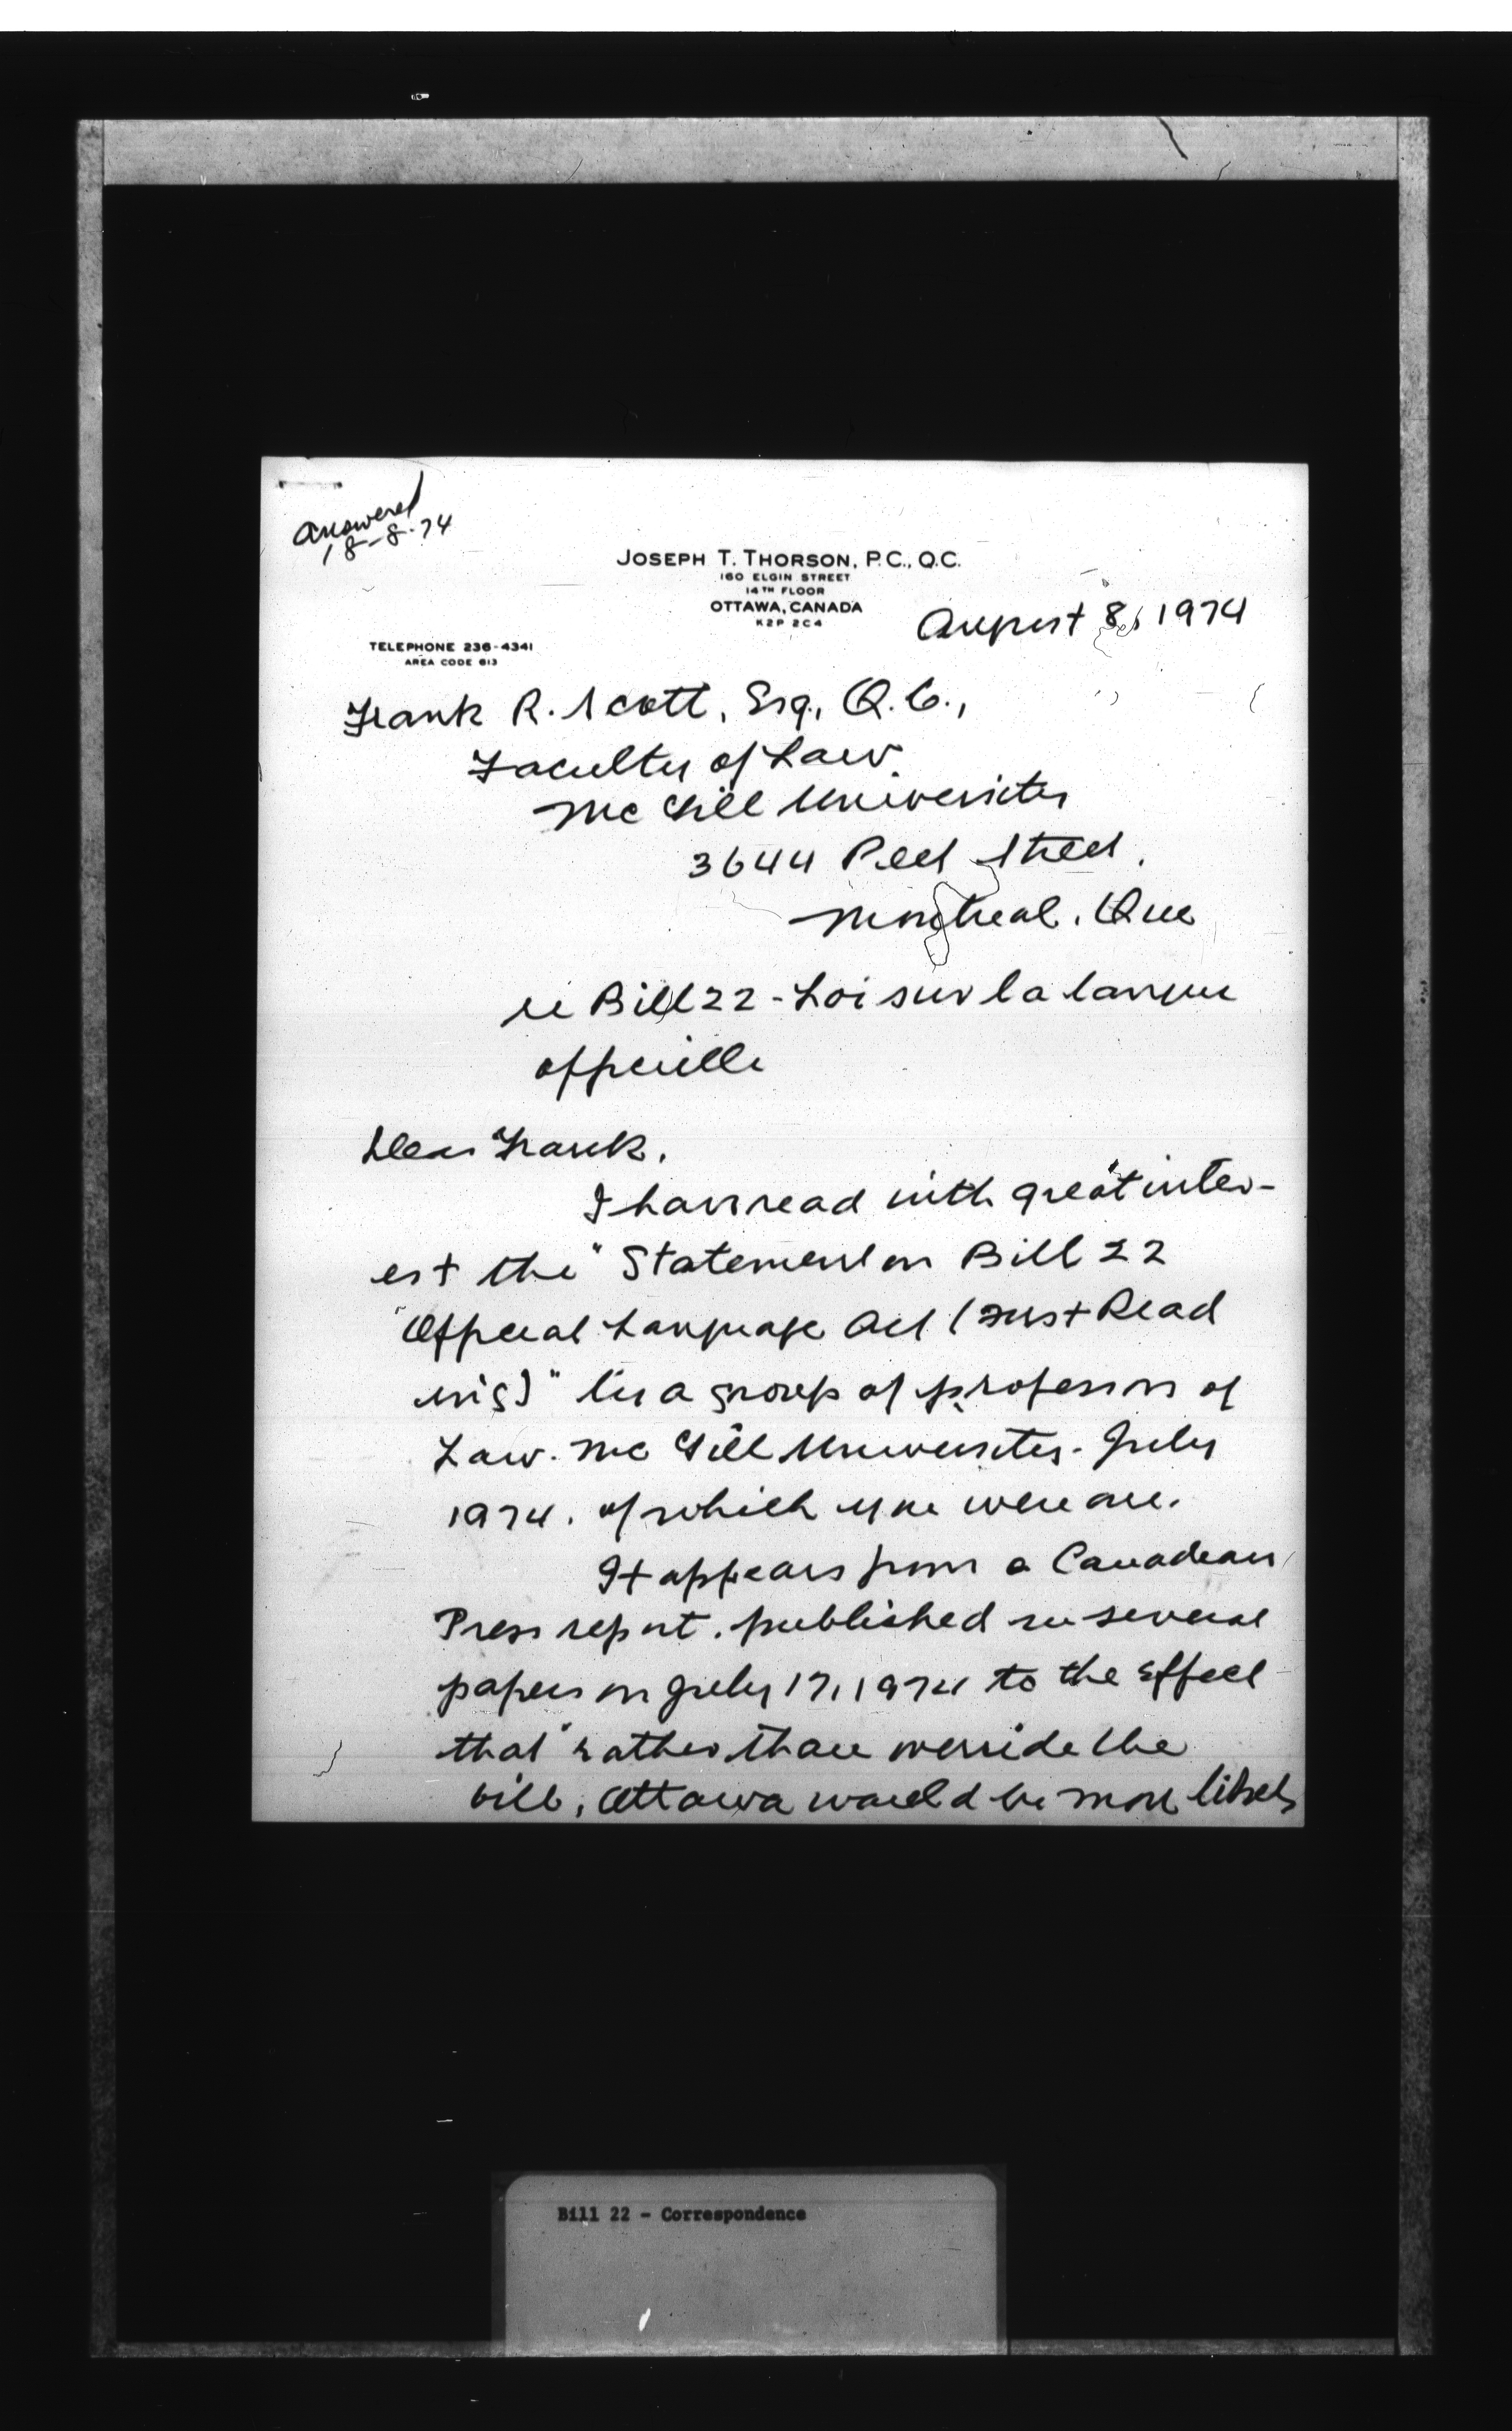 Answered
18-8-74
JOSEPH T. THORSON, P.C., Q.C.
160 ELGIN STREET
14TH FLOOR
OTTAWA, CANADA
K2P 2C4
August 8, 1974
TELEPHONE 236-4341
AREA CODE 613
Frank R. Scott, Esq., Q.C.,
Faculty of Law,
McGill University
3644 Peel Street,
Montreal, Que
re Bill 22 - Loi sur la langue
officielle
Dear Frank,
I have read with great inter-
est the "Statement on Bill 22
"Official Language Act (First Read
ing)" by a group of professors of
Law. McGill University - July
1974, of which you were one.
It appears from a Canadian
Press report, published in several
papers on July 17, 1974 to the effect
that "rather than override the
bill, Ottawa would be more likely
Bill 22 - Correspondence